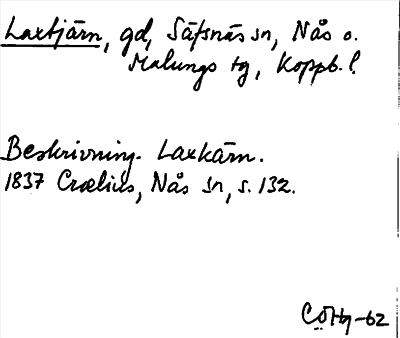 Laxtjärn, gd, Säfsnäs sn, Nås o.
Malungs tg, Koppb. l.
Beskrivning. Laxkärn.
1837 Crælius, Nås sn, s. 132.
CÖHg-62